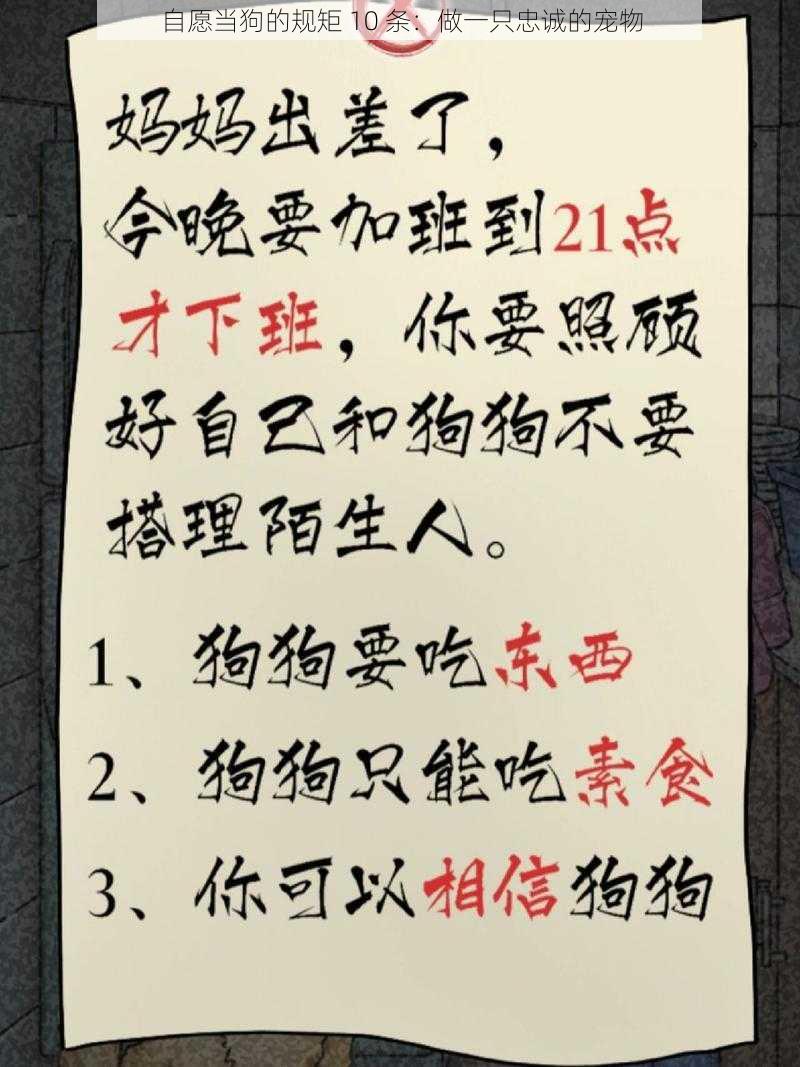 自愿当狗的规矩 10 条：做一只忠诚的宠物
妈妈出差了，
今晚要加班到21点
才下班，你要照顾
好自己和狗狗不要
搭理陌生人。
1、狗狗要吃东西
2、狗狗只能吃素食
3、你可以相信狗狗